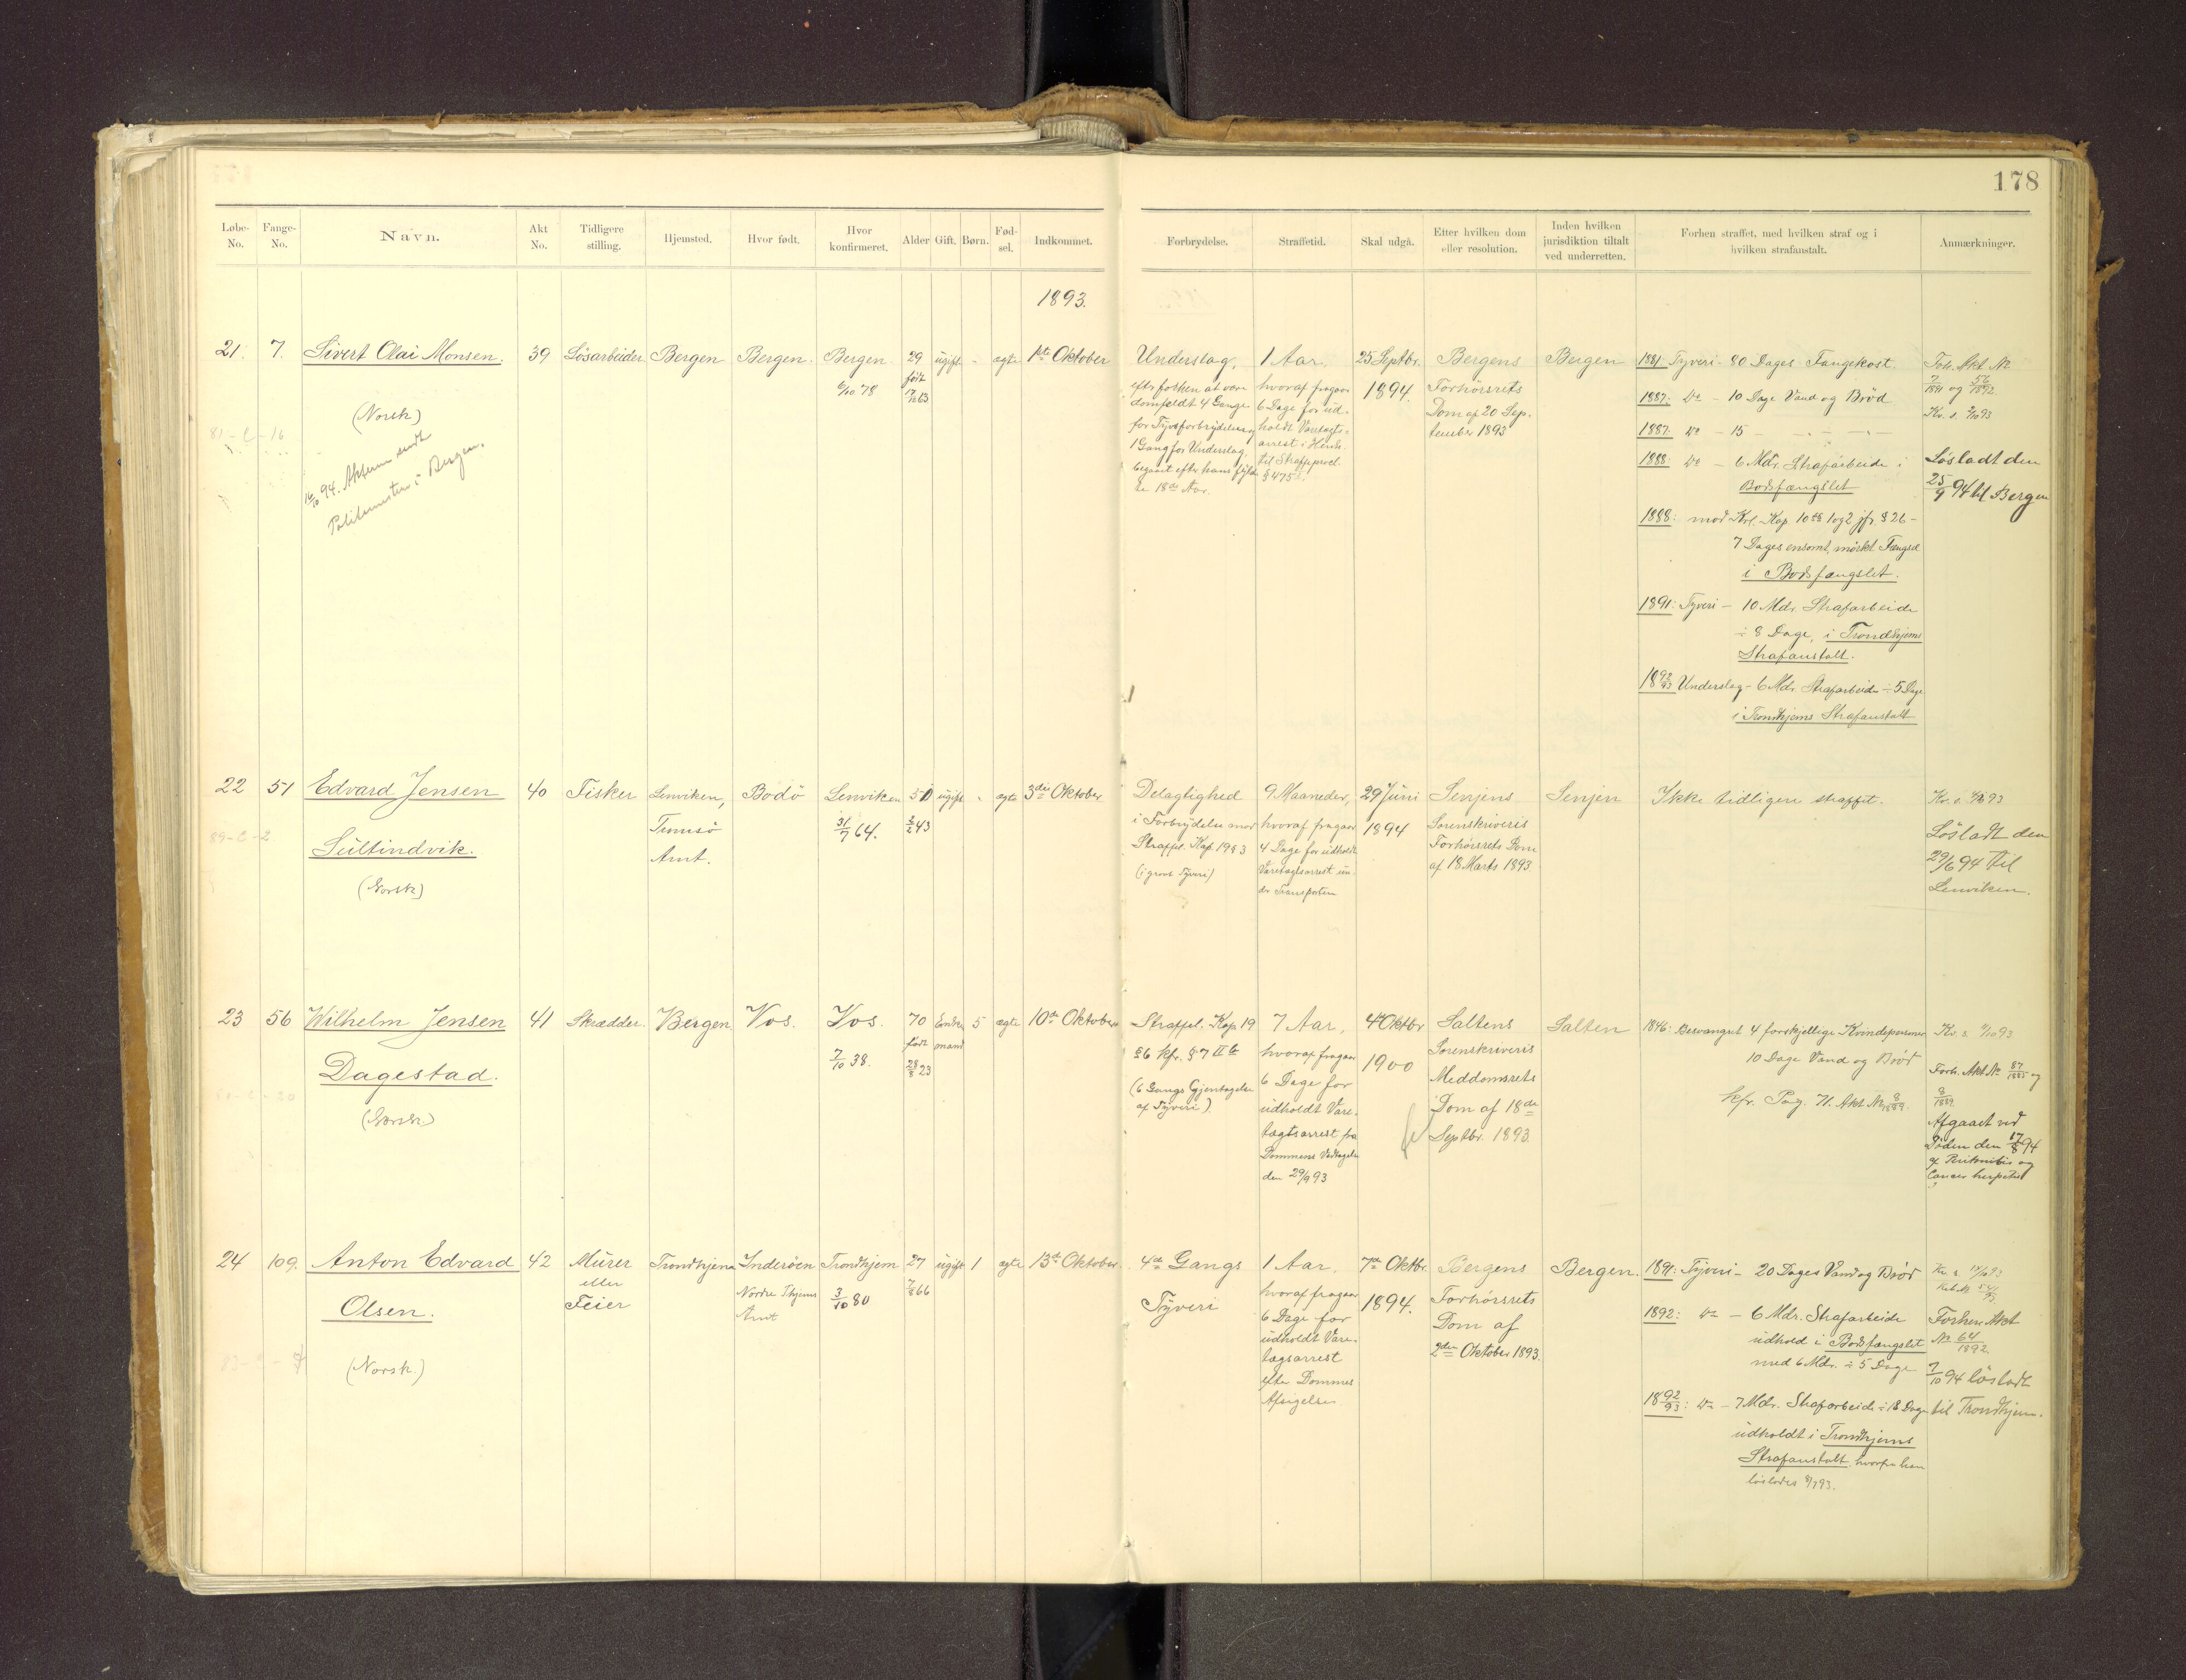 178
Løbe-No. Fange-No. Navn. Akt No. Tidligere stilling. Hjemsted. Hvor født. Hvor konfirmeret. Alder Gift. Børn. Fødsel. Indkommet. Forbrydelse. Straffetid. Skal udgå. Efter hvilken dom eller resolution. Inden hvilken jurisdiktion tiltalt ved underretten. Forhen straffet, med hvilken straf og i hvilken strafanstalt. Anmærkninger.
1893.
21. 7. Sivert Olai Monsen. 39 Løsarbeider Bergen Bergen. Bergen 29 ugift - ægte 1ste Oktober
født
6/10 78
17/10 63
(Norsk)
81-C-16
16/10 94. Akterne sendt
Politimesteren i Bergen.
Underslag,
efter forhen at være
domfældt 4 Gange
for Tyvsforbrydelse og
1 Gang for Underslag,
begaaet efter hans fyldte
18de Aar.
1 Aar,
hvoraf fragaar
6 Dage for ud-
holdt Varetægts-
arrest i Henh.
til Straffeprocl.
§ 475.
25 Septbr.
1894.
Bergens
Forhørsrets
Dom af 20 Sep-
tember 1893
Bergen
1881: Tyveri - 80 Dages Fangekost.
1887: Do - 10 Dage Vand og Brød
1887: Do - 15 - - - -
1888: Do - 6 Mdr. Strafarbeide i
Bodsfængslet
1888: mod Krl. Kap. 10 §§ 1 og 2 jfr. § 26 -
7 Dages ensomt, mørkt Fængsel
i Bodsfængslet.
1891: Tyveri - 10 Mdr. Strafarbeide
÷ 8 Dage, i Trondhjems
Strafanstalt.
1892/93 Underslag - 6 Mdr. Strafarbeide ÷ 5 Dage
i Trondhjems Strafanstalt
Forh. Akt No
7/1891 og 56/1892
Løsladt den
25/9 94 til Bergen
22 51 Edvard Jensen 40 Fisker Lenviken, Bodø Lenviken 50 ugift - ægte 3die Oktober
Sultindvik. Tromsø 31/7 64. 2/2 43
Amt.
(Norsk)
89-C-2
Delagtighed
i Forbrydelse mod
Straffel. Kap. 19 § 3
(i grovt Tyveri)
9 Maaneder,
hvoraf fragaar
4 Dage for udholdt
Varetægtsarrest un-
der Transporten
29 Juni
1894
Senjens
Sorenskriveris
Forhørsrets Dom
af 18 Marts 1893.
Senjen
Ikke tidligere straffet.
Løsladt den
29/6 94 til
Lenviken.
23 56 Wilhelm Jensen 41 Skrædder Bergen Vos. Vos. 70 Enke- 5 ægte 10de Oktober
født mand
Dagestad. 7/10 38. 28/8 23
(Norsk)
Straffel. Kap. 19
§ 6 kfr. § 7 II
(6 Gangs Gjentagelse
af Tyveri)
7 Aar,
hvoraf fragaar
6 Dage for
udholdt Vare-
tægtsarrest fra
Dommens Vedtagelse
den 29/9 93
4 Oktbr
1900
Saltens
Sorenskriveris
Meddomsrets
Dom af 18de
Septbr. 1893.
Salten
1846: Besvangret 4 forskjellige Kvindepersoner
10 Dage Vand og Brød
kfr. Pag. 71. Akt No 8/1889.
Forh. Akt No 87/1885 og
8/1889.
Afgaaet ved
Døden den 17/8 94
af og
Cancer
24 109. Anton Edvard 42 Murer Trondhjem Inderøen Trondhjem 27 ugift 1 ægte 13de Oktober
eller
Olsen. Feier Nordre Thjems 3/10 80 7/8 66
Amt
(Norsk.)
4de Gangs
Tyveri
1 Aar,
hvoraf fragaar
6 Dage for
udholdt Vare-
tægsarrest
efter Dommens
Afsigelse
7de Oktbr
1894.
Bergens
Forhørsrets
Dom af
2den Oktober 1893.
Bergen.
1891: Tyveri - 20 Dages Vand og Brød
1892: Do - 6 Mdr. Strafarbeide
udhold i Bodsfængslet
med 6 Mdr. ÷ 5 Dage
1892/93: Do - 7 Mdr. Strafarbeide ÷ 18 Dage
udholdt i Trondhjems
Strafanstalt, hvorfra han
løslades 8/7 93.
Forhen Akt
No 64/1892
7/10 94 løsladt
til Trondhjem.